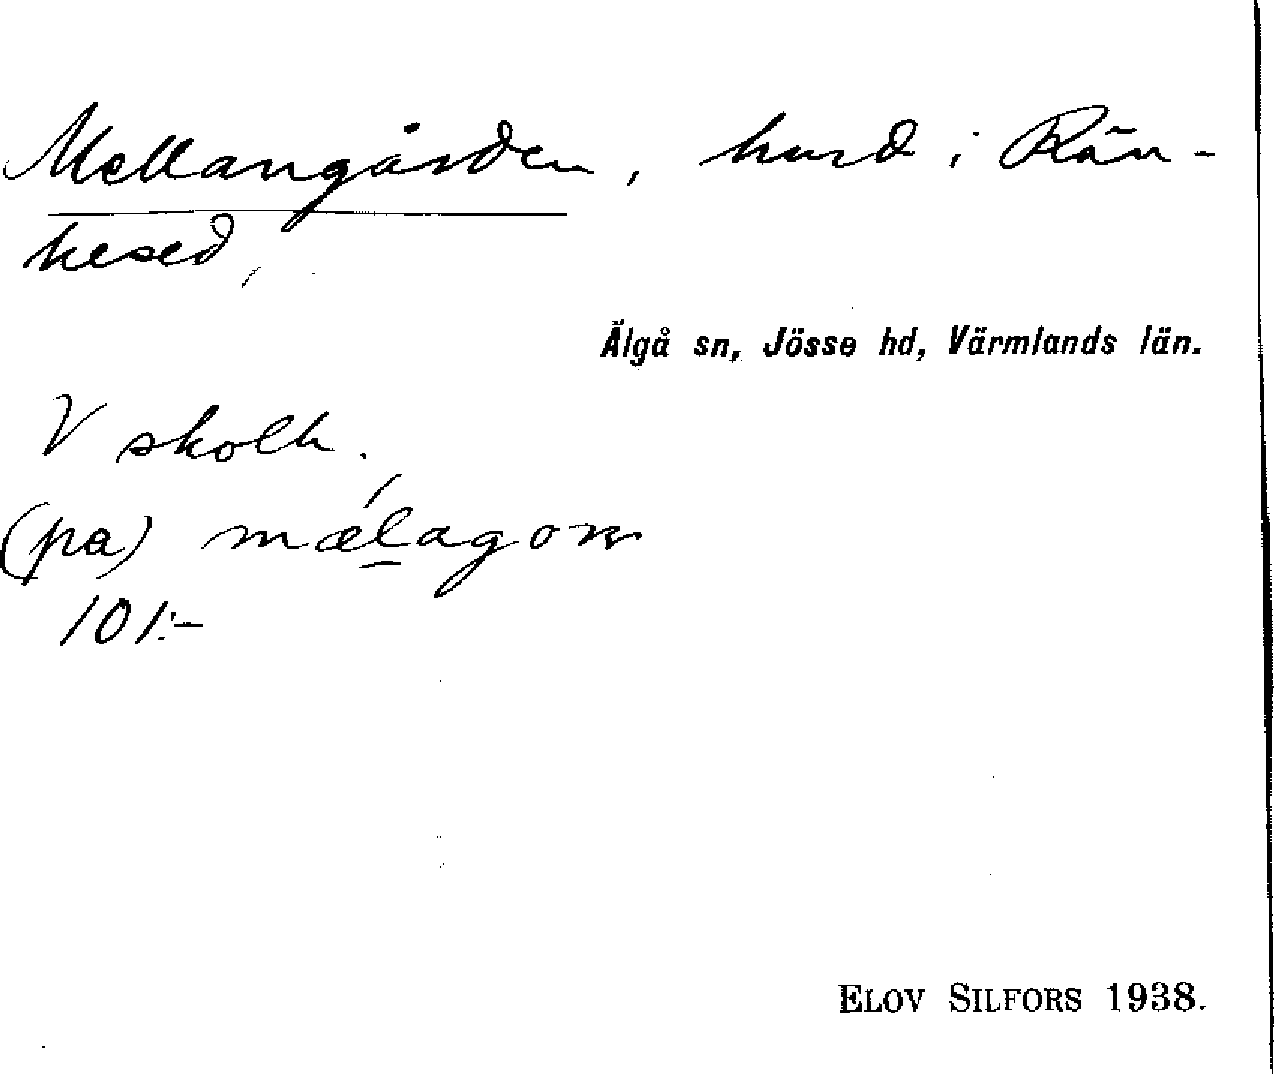 Mellangården, hmd i Rän-
kesed,
Älgå sn, Jösse hd, Värmlands län.
V skolh.
(pa)
101:-
ELOV SILFORS 1938.